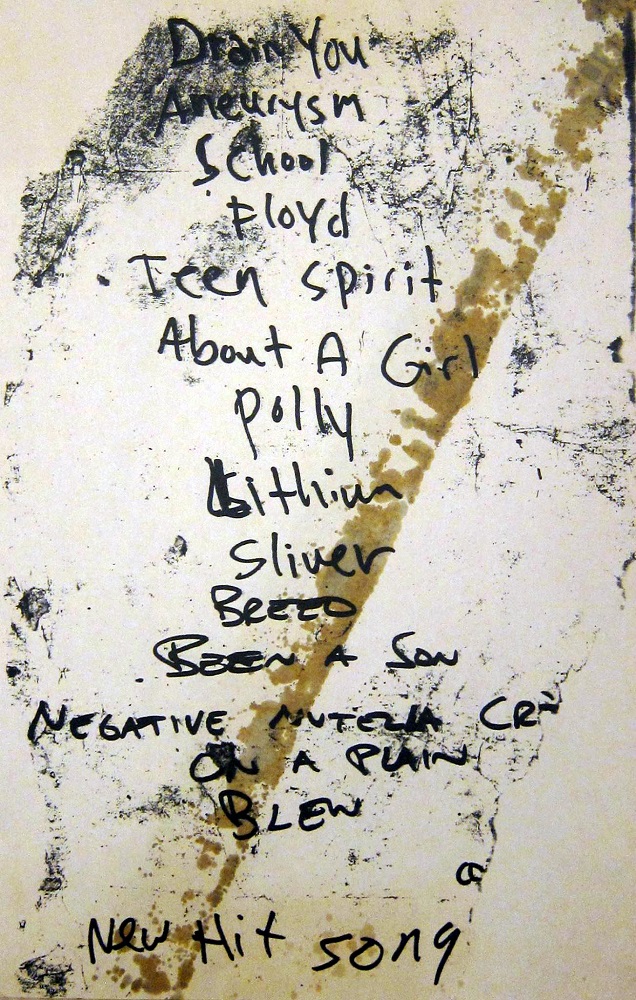 Drain You
Aneurysm
School
Floyd
Teen Spirit
About A Girl
Polly
Lithium
Sliver
BREED
BEEN A SON
NEGATIVE CR
ON A PLAIN
BLEW
New Hit song